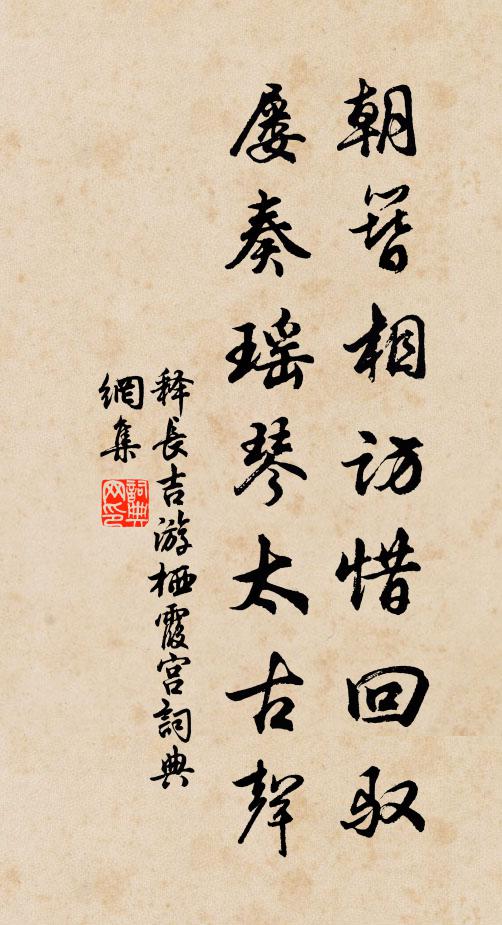 朝簪相访惜回驭
屡奏瑶琴太古聲
释長吉游栖霞宫詞典
網集
詞典
网印